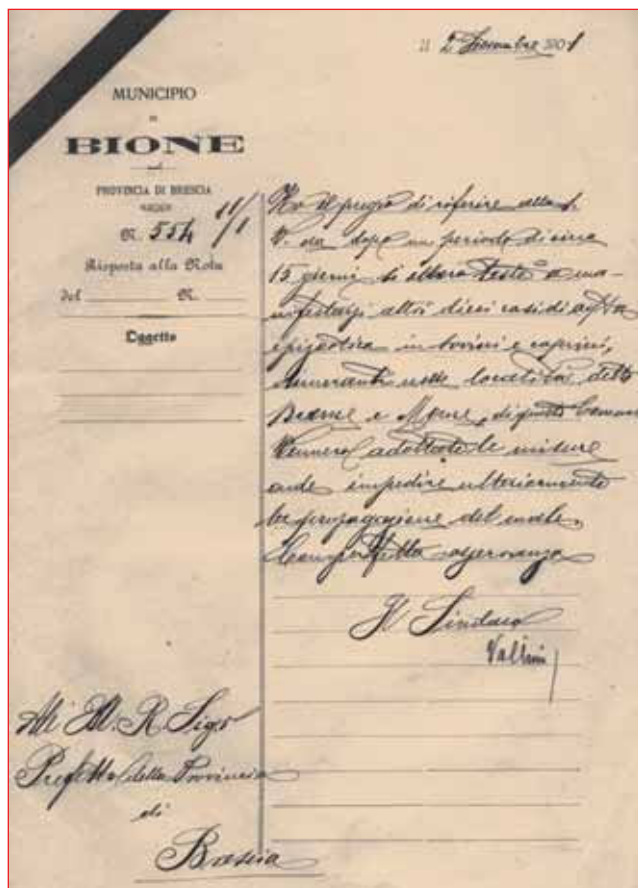 Il 2 Novembre 1901
MUNICIPIO
DI
BIONE
PROVINCIA DI BRESCIA
N. 554 11/1
Risposta alla Nota
del N.
Oggetto
Ho il pregio di riferire alla S.
V. che dopo un periodo di circa
15 giorni si ebbero testè a ma-
nifestarsi altri dieci casi di afta
epizootica in bovini e caprini,
dimoranti nelle località dette
e questo Comune
Vennero adottate le misure
onde impedire ulteriormente
la propagazione del male.
Con perfetta osservanza
Il Sindaco
Vallini
All' Ill. R. Sigr
Prefetto della Provincia
di
Brescia